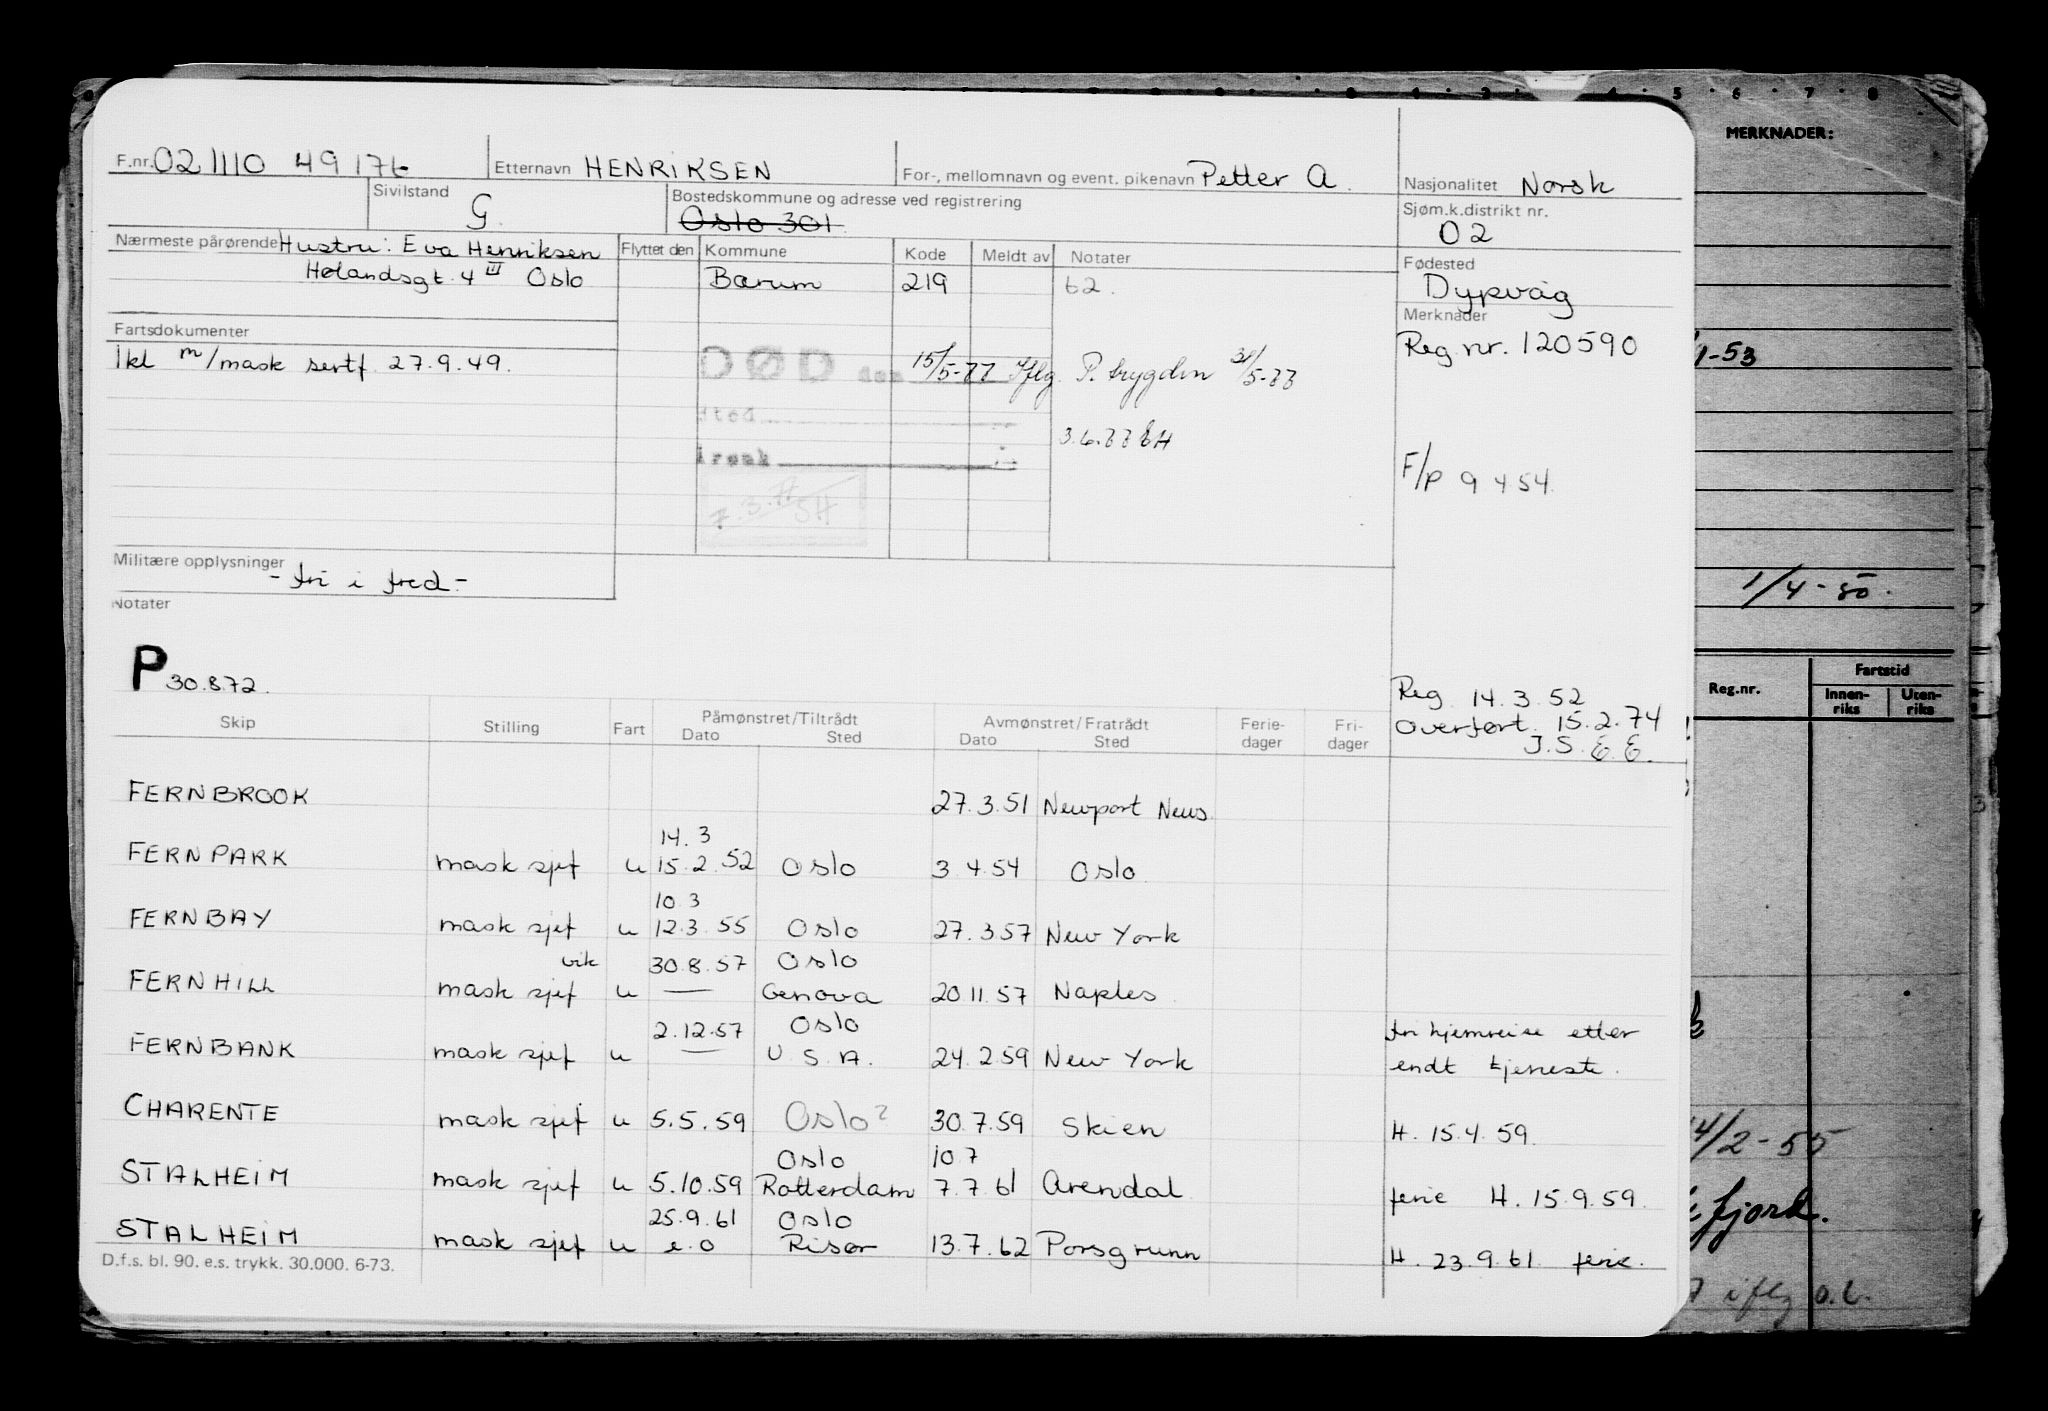 F.nr. 021110 49176 Etternavn HENRIKSEN For-, mellomnavn og event. pikenavn Petter A. Nasjonalitet Norsk
Sivilstand G. Bostedskommune og adresse ved registrering Oslo 301. Sjøm.k.distrikt nr. 02
Nærmeste pårørende Hustru: Eva Henriksen Flyttet den Kommune Kode Meldt av Notater Fødested
Hølandsgt. 4 III Oslo Bærum 219 62. Dypvåg
Fartsdokumenter Merknader
1kl m/mask sertf. 27.9.49. Reg nr. 120590
DØD den 15/5-77 Iflg. P. trygden 31/5-77
sted
3.6.77
årsak
F/p 9454.
7.3.77 SH
Militære opplysninger - fri i fred -
Notater
P 30.8.72.
Reg 14.3.52
Overført. 15.2.74
J.S.E.E.
Skip Stilling Fart Påmønstret/Tiltrådt Avmønstret/Fratrådt Ferie- Fri-
Dato Sted Dato Sted dager dager
FERNBROOK 27.3.51 Newport News
14.3
FERNPARK mask sjef u 15.2.52 Oslo 3.4.54 Oslo
10.3
FERNBAY mask sjef u 12.3.55 Oslo 27.3.57 New York
vik 30.8.57 Oslo
FERNHILL mask sjef u — Genova 20.11.57 Naples
2.12.57 Oslo fri hjemreise etter
FERNBANK mask sjef u — U.S.A. 24.2.59 New York endt tjeneste.
CHARENTE mask sjef u 5.5.59 Oslo? 30.7.59 Skien H. 15.4.59.
Oslo 10.7
STALHEIM mask sjef u 5.10.59 Rotterdam 7.7.61 Arendal ferie H. 15.9.59.
25.9.61 Oslo
STALHEIM mask sjef u e.o Risør 13.7.62 Porsgrunn H. 23.9.61 ferie.
D.f.s. bl. 90. e.s. trykk. 30.000. 6-73.
5 6 7 8
MERKNADER:
1-53
1/4-50.
Reg.nr. Fartstid
Innen-
riks Uten-
riks
14/2-55
fjord.
iflg o.b.